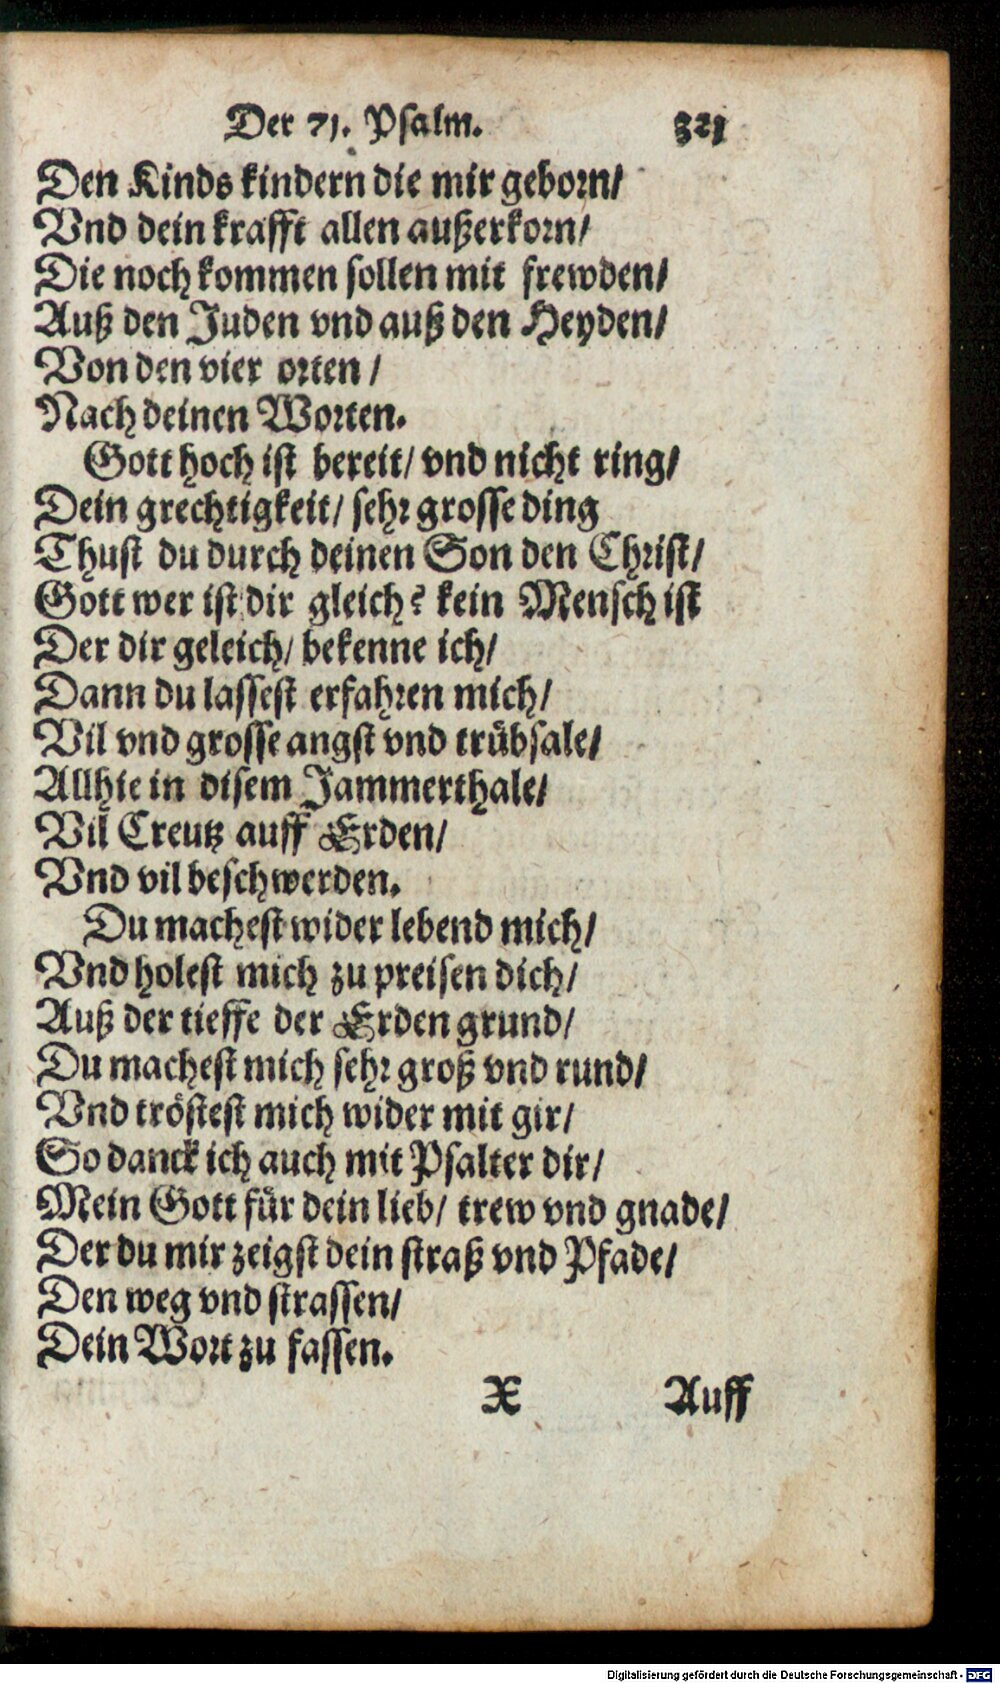 Der 71. Psalm. 321
Den Kinds kindern die mir geborn/
Vnd dein krafft allen außerkorn/
Die noch kommen sollen mit frewden/
Auß den Juden vnd auß den Heyden/
Von den vier orten /
Nach deinen Worten.
Gott hoch ist bereit/ vnd nicht ring/
Dein grechtigkeit/ sehr grosse ding
Thust du durch deinen Son den Christ/
Gott wer ist dir gleich? kein Mensch ist
Der dir geleich/ bekenne ich/
Dann du lassest erfahren mich/
Vil vnd grosse angst vnd trübsale/
Allhie in disem Jammerthale/
Vil Creutz auff Erden/
Vnd vil beschwerden.
Du machest wider lebend mich/
Vnd holest mich zu preisen dich/
Auß der tieffe der Erden grund/
Du machest mich sehr groß vnd rund/
Vnd tröstest mich wider mit gir/
So danck ich auch mit Psalter dir/
Mein Gott für dein lieb/ trew vnd gnade/
Der du mir zeigst dein straß vnd Pfade/
Den weg vnd strassen/
Dein Wort zu fassen.
X Auff
Digitalisierung gefördert durch die Deutsche Forschungsgemeinschaft - DFG